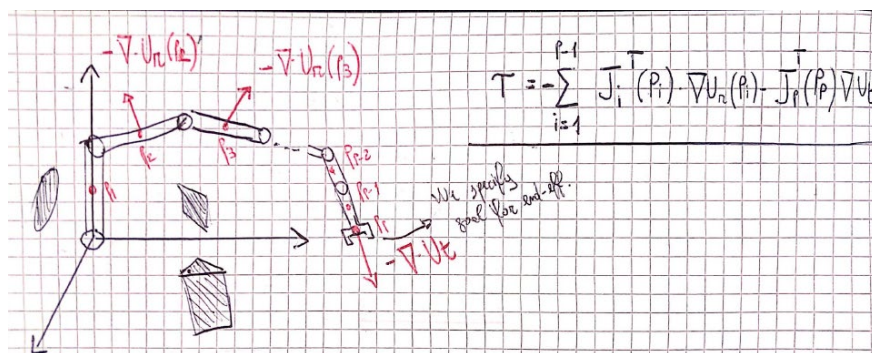 -∇·U_r(P2)
-∇·U_r(P3)
τ = -∑_{i=1}^{P-1} J_i^T(P_i)·∇U_r(P_i) - J_P^T(P_P)∇Ut
P1
P2
P3
PP-2
PP-1
PP
We specify
goal for end-eff.
-∇·Ut